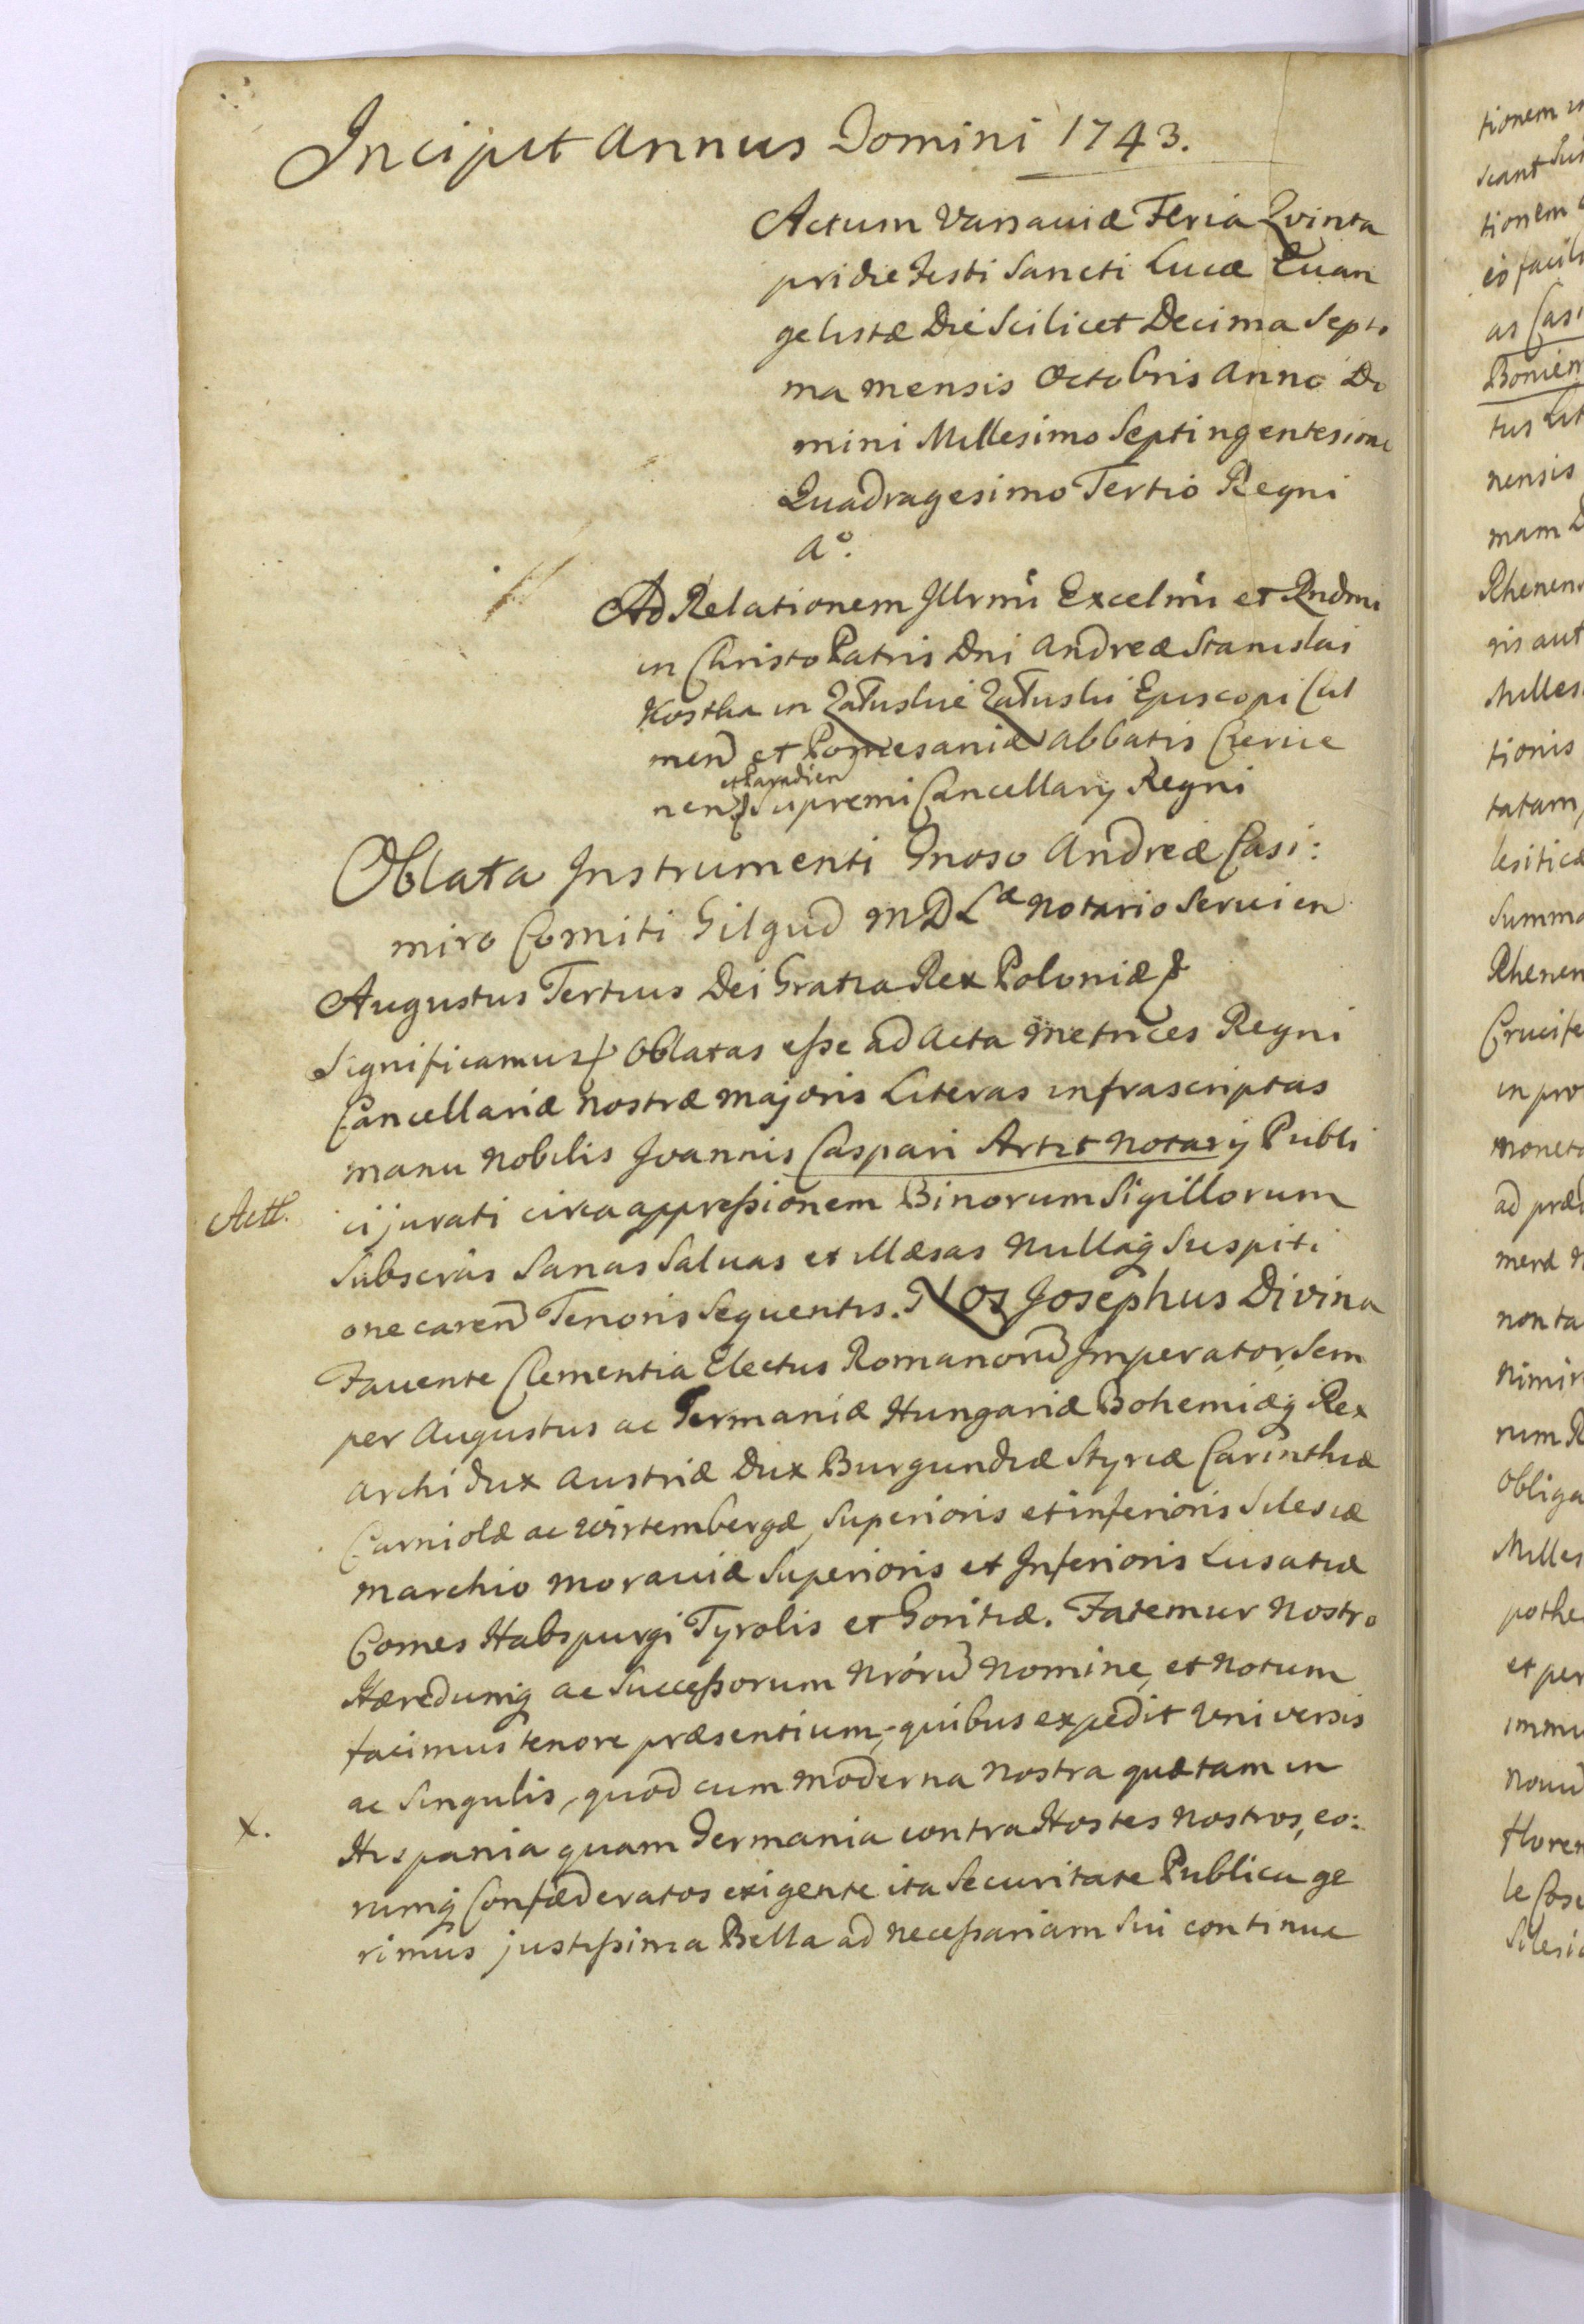 Incipit Annus Domini 1743.
Actum Varsaviæ Feria Qvinta
pridie Festi Sancti Lucæ Evan
gelistæ Die Scilicet Decima Septi
ma mensis Octobris Anno Do
mini Millesimo Septingentesimo
Quadragesimo Tertio Regni
Aº.
Ad Relationem Illrmi Excelmi et Rndmi
in Christo Patris Dni Andreæ Stanislai
Kostka in Załuskie Załuski Episcopi Cul
men et Pomesaniæ Abbatis Czerwie
et Paradien
nen Supremi Cancellarij Regni
Oblata Instrumenti Gnoso Andreæ Casi:
miro Comiti Gilgud M D L æ Notario Servien
Augustus Tertius Dei Gratia Rex Poloniæ &
Significamus & Oblatas esse ad Acta Metrices Regni
Cancellariæ Nostræ Majoris Literas infrascriptas
manu Nobilis Joannis Caspari Artzt Notarij Publi
Actt.
ci jurati circa appressionem Binorum Sigillorum
Subscras Sanas Salvas et Illæsas Nullaq Suspiti
one caren Tenoris Sequentis. Nos Josephus Divina
Favente Clementia Electus Romanoru Imperator, Sem
per Augustus ac Germaniæ Hungariæ Bohemiæq Rex
Archi dux Austriæ Dux Burgundiæ Styriæ Carinthiæ
Carniolæ ac Wirtembergæ, Superioris et inferioris Silesiæ
Marchio Moraviæ Superioris et Inferioris Lusatiæ
Comes Habspurgi Tyrolis et Goritiæ. Fatemur Nostro
Hæredumq ac Successorum Nróru Nomine, et Notum
facimus tenore præsentium, quibus expedit Universis
ac Singulis, quod cum moderna Nostra quæ tam in
X.
Hispania quam Germania contra Hostes Nostros, eo:
rumq Confæderatos exigente ita Securitate Publica ge
rimus justissima Bella ad necessariam Sui continua
tionem
tionem
as Casi
tus Lit
nensis
mam
ris aut
Milles
tionis
tatam,
lesiticæ
Summa
Rhenen
in pro
moneta
ad præ
non ta
rum R
Obliga
Milles
pothe
et per
Floren
Silesi